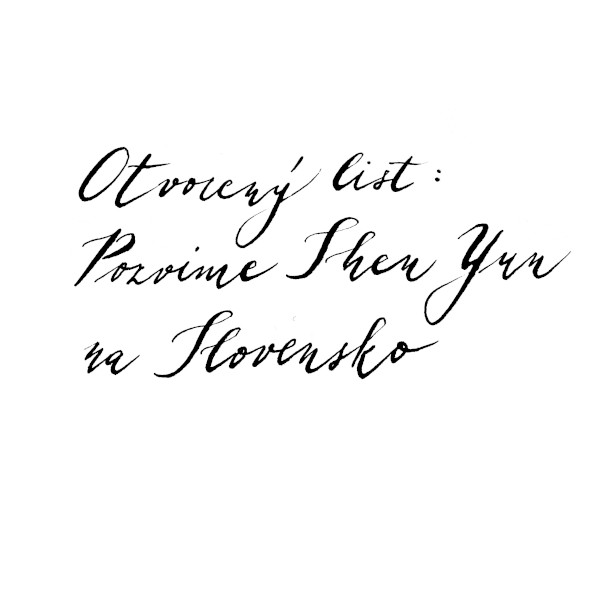 Otvorený list:
Pozvime Shen Yun
na Slovensko